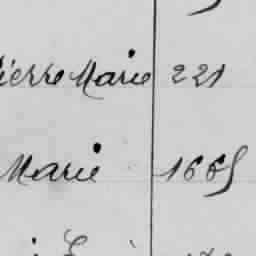 Pierre Marie 221
Marie 1665